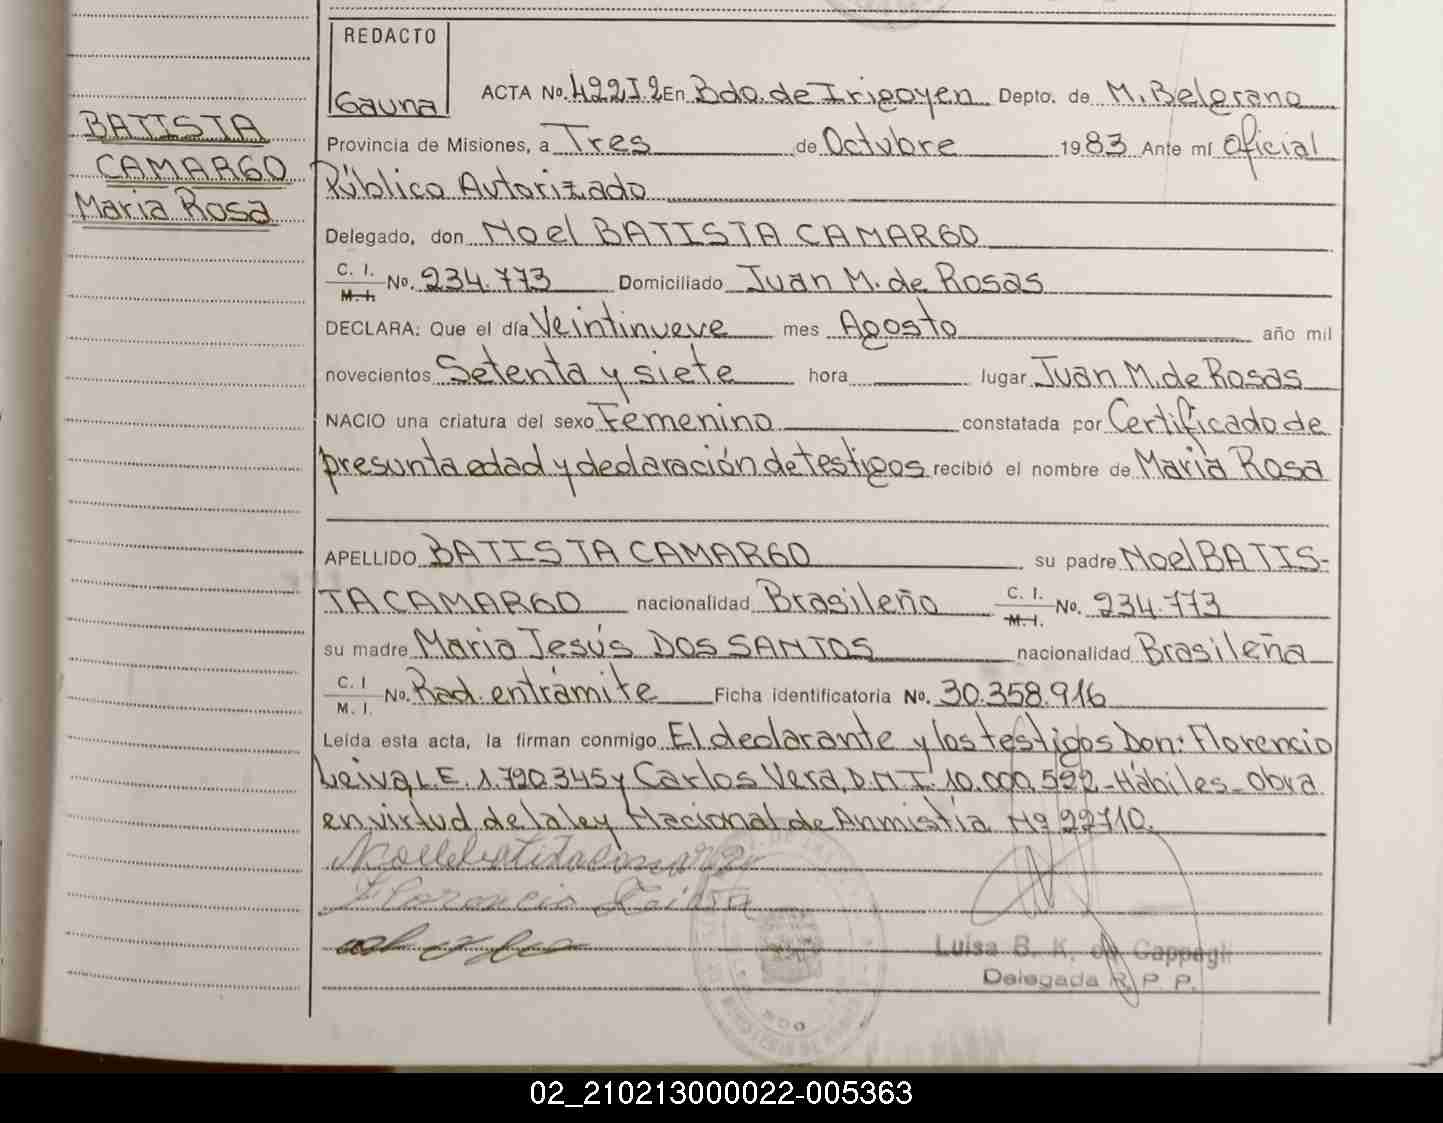 REDACTO
Gauna
BATISTA
CAMARGO
Maria Rosa
ACTA No. 422I.2 En Bdo. de Irigoyen Depto. de M. Belgrano
Provincia de Misiones, a Tres de Octubre 1983 Ante mí Oficial
Público Autorizado
Delegado, don Noel BATISTA CAMARGO
C. I.
M. I. No. 234.773 Domiciliado Juan M. de Rosas
DECLARA: Que el día Veintinueve mes Agosto año mil
novecientos Setenta y siete hora lugar Juan M. de Rosas
NACIO una criatura del sexo Femenino constatada por Certificado de
presunta edad y declaración de testigos recibió el nombre de Maria Rosa
APELLIDO BATISTA CAMARGO su padre Noel BATIS-
TA CAMARGO nacionalidad Brasileño C. I.
M. I. No. 234.773
su madre Maria Jesús DOS SANTOS nacionalidad Brasileña
C. I
M. I. No. Rad. en trámite Ficha identificatoria No. 30.358.916
Leída esta acta, la firman conmigo El declarante y los testigos Don: Florencio
Leiva, L.E. 1.720.345 y Carlos Vera, D.N.I. 10.000.592 - Hábiles - Obra
en virtud de la ley Nacional de Anmistía Nº 22710.
Florencio Leiva
Luisa B. K. de Cappagli
Delegada R. P. P.
02_210213000022-005363